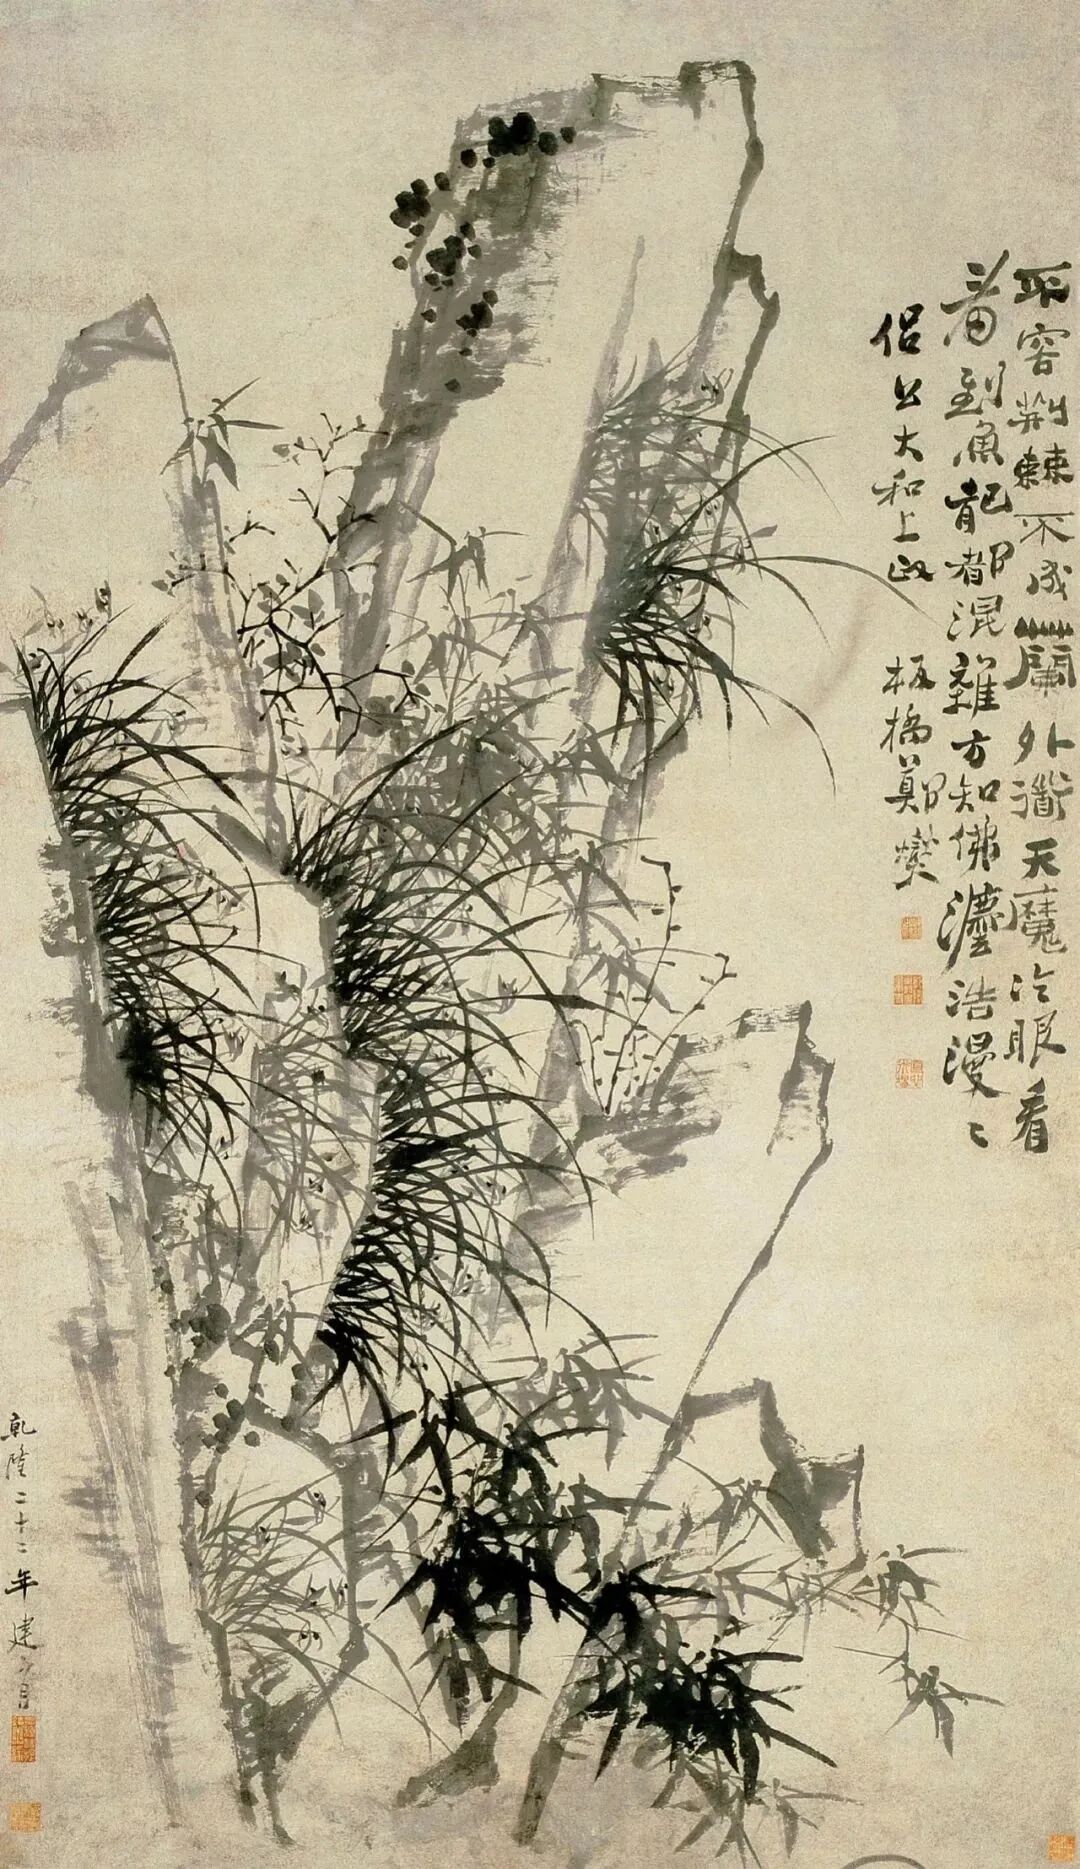 不容荆棘不成蘭外道天魔冷眼看
看到魚龍都混雜方知佛灋浩漫〻
侶公大和上政 板橋鄭燮
乾隆二十二年建子月